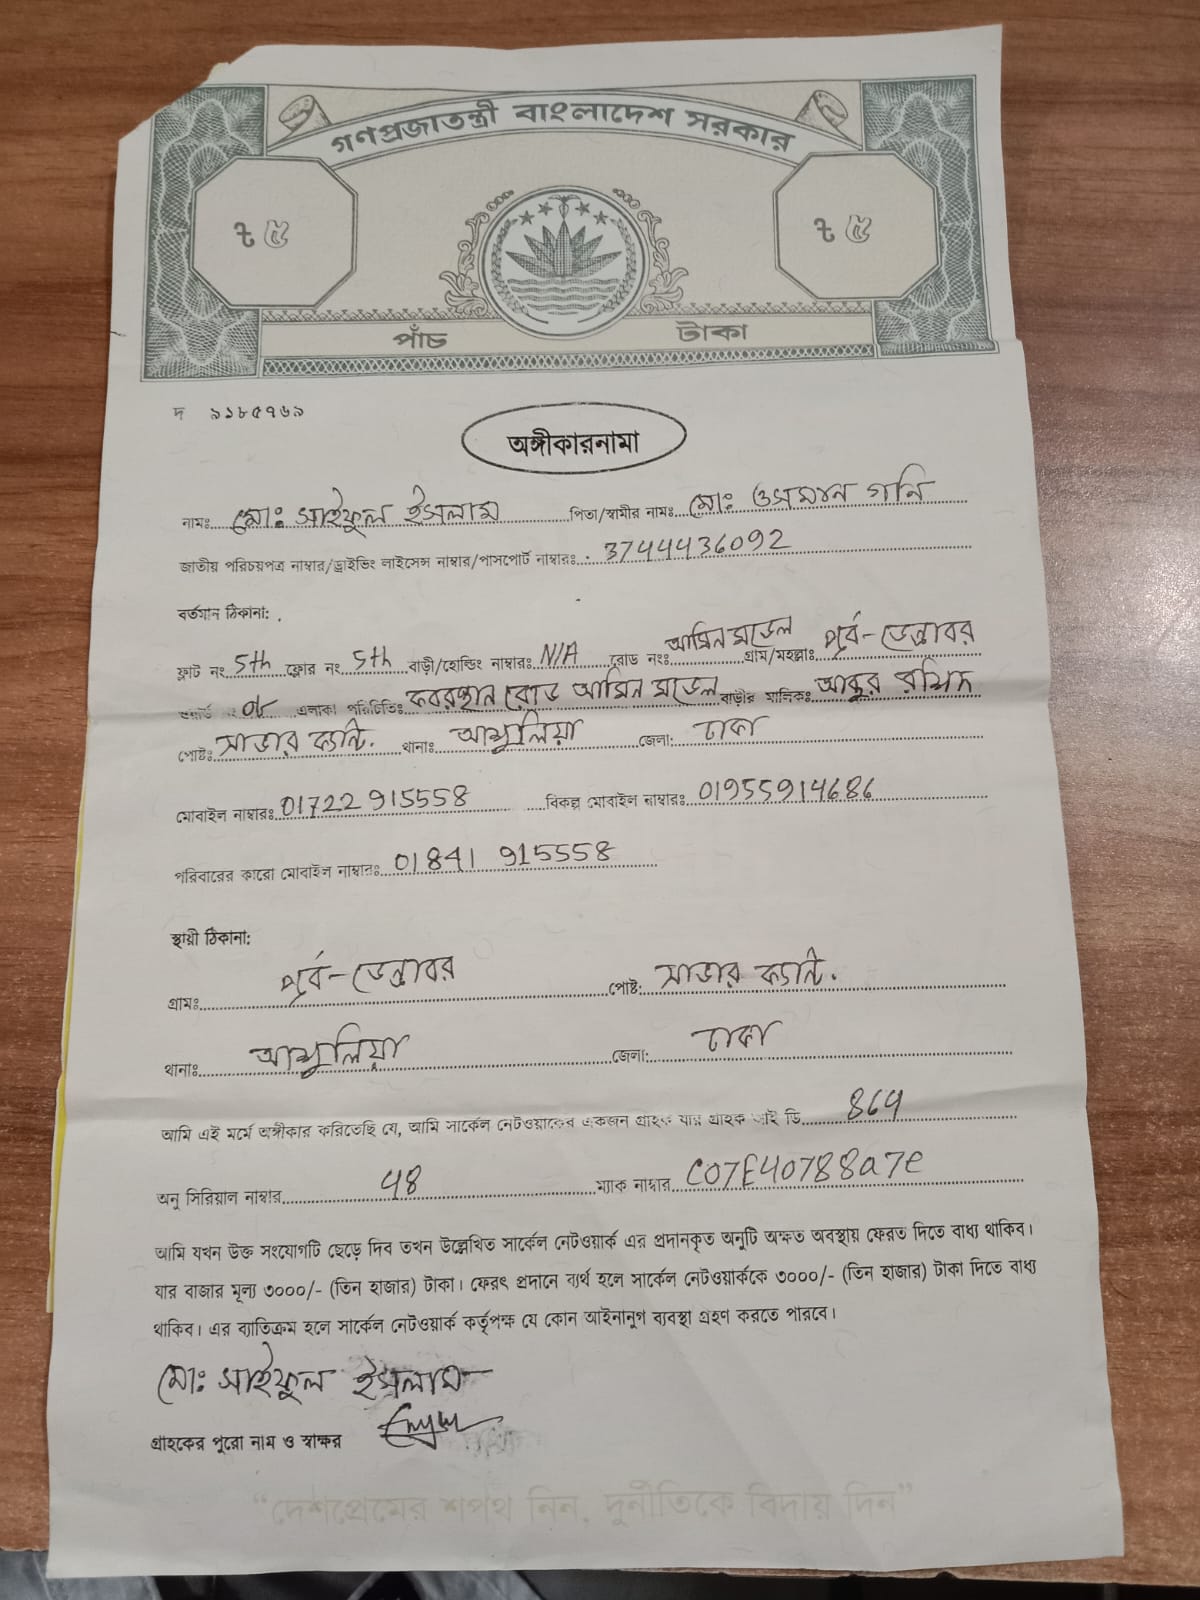 গণপ্রজাতন্ত্রী বাংলাদেশ সরকার
৳ ৫ ৳ ৫
পাঁচ টাকা
দ ৯১৮৫৭৬৯
অঙ্গীকারনামা
নামঃ মোঃ সাইফুল ইসলাম পিতা/স্বামীর নামঃ মোঃ ওসমান গনি
জাতীয় পরিচয়পত্র নাম্বার/ড্রাইভিং লাইসেন্স নাম্বার/পাসপোর্ট নাম্বারঃ 3744436092
বর্তমান ঠিকানা:
ফ্লাট নং 5th ফ্লোর নং 5th বাড়ী/হোল্ডিং নাম্বারঃ N/A রোড নংঃ আমিন মডেল গ্রাম/মহল্লাঃ পূর্ব-ডেন্ডাবর
ওয়ার্ড নং ০৮ এলাকা পরিচিতিঃ কবরস্থান রোড আমিন মডেল বাড়ীর মালিকঃ আব্দুর রশিদ
পোষ্ট: সাভার ক্যান্ট. থানাঃ আশুলিয়া জেলা: ঢাকা
মোবাইল নাম্বারঃ 01722915558 বিকল্প মোবাইল নাম্বারঃ 01955914686
পরিবারের কারো মোবাইল নাম্বারঃ 01841 915558
স্থায়ী ঠিকানা:
গ্রামঃ পূর্ব-ডেন্ডাবর পোষ্ট: সাভার ক্যান্ট.
থানাঃ আশুলিয়া জেলা: ঢাকা
আমি এই মর্মে অঙ্গীকার করিতেছি যে, আমি সার্কেল নেটওয়াকের একজন গ্রাহক যার গ্রাহক আই ডি 864
অনু সিরিয়াল নাম্বার 48 ম্যাক নাম্বার C07E40788a7e
আমি যখন উক্ত সংযোগটি ছেড়ে দিব তখন উল্লেখিত সার্কেল নেটওয়ার্ক এর প্রদানকৃত অনুটি অক্ষত অবস্থায় ফেরত দিতে বাধ্য থাকিব।
যার বাজার মূল্য ৩০০০/- (তিন হাজার) টাকা। ফেরৎ প্রদানে ব্যর্থ হলে সার্কেল নেটওয়ার্ককে ৩০০০/- (তিন হাজার) টাকা দিতে বাধ্য
থাকিব। এর ব্যতিক্রম হলে সার্কেল নেটওয়ার্ক কর্তৃপক্ষ যে কোন আইনানুগ ব্যবস্থা গ্রহণ করতে পারবে।
মোঃ সাইফুল ইসলাম
গ্রাহকের পুরো নাম ও স্বাক্ষর
“দেশপ্রেমের শপথ নিন, দুর্নীতিকে বিদায় দিন”